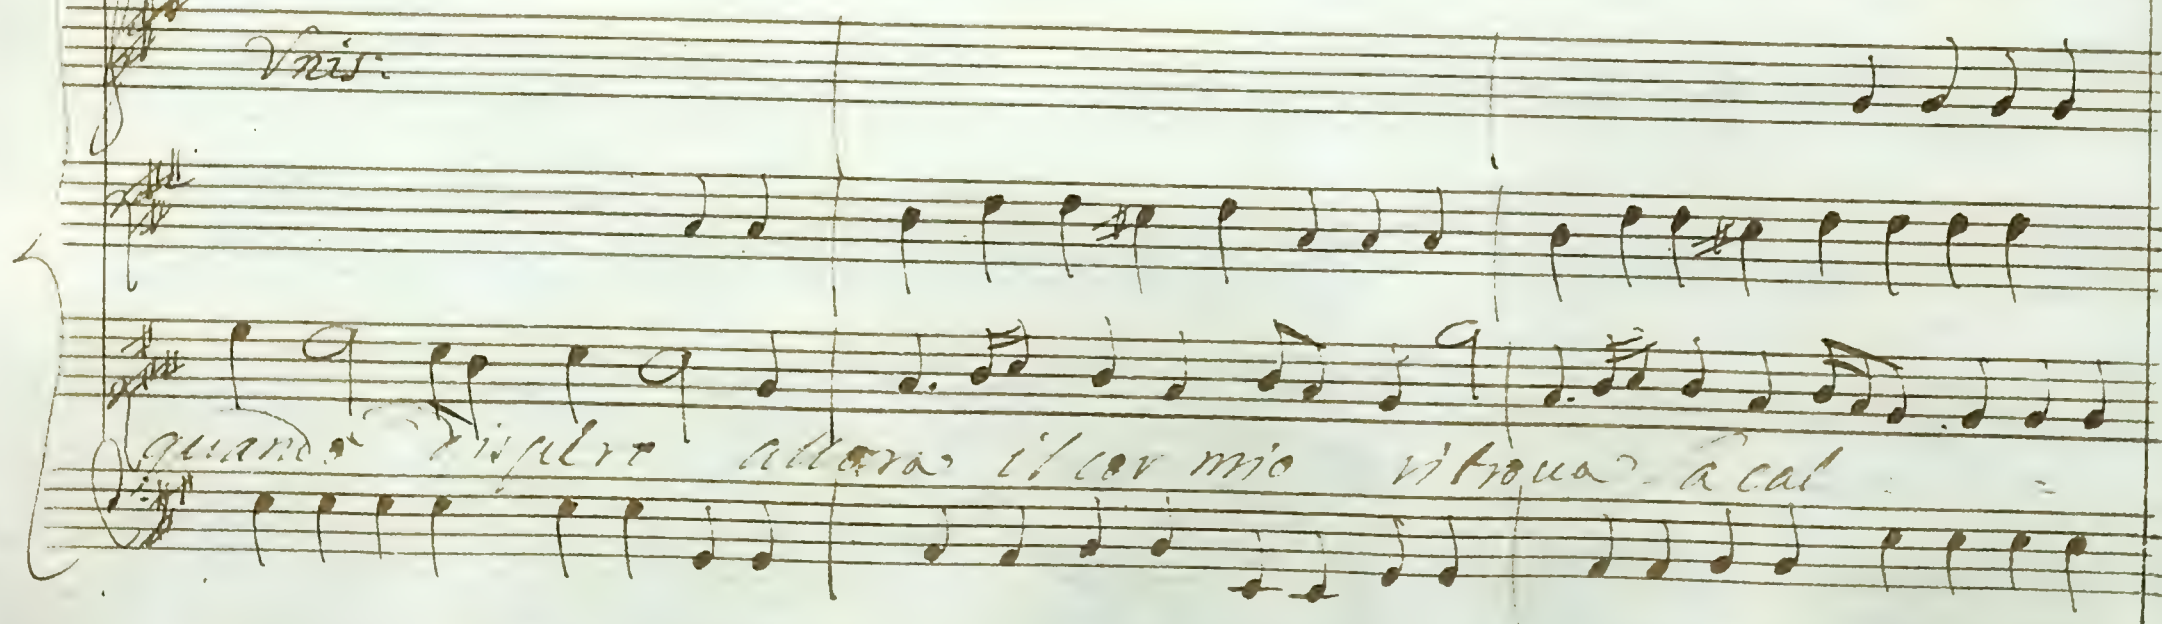 Vnis:
quando dispero allora il cor mio ritroua a cal